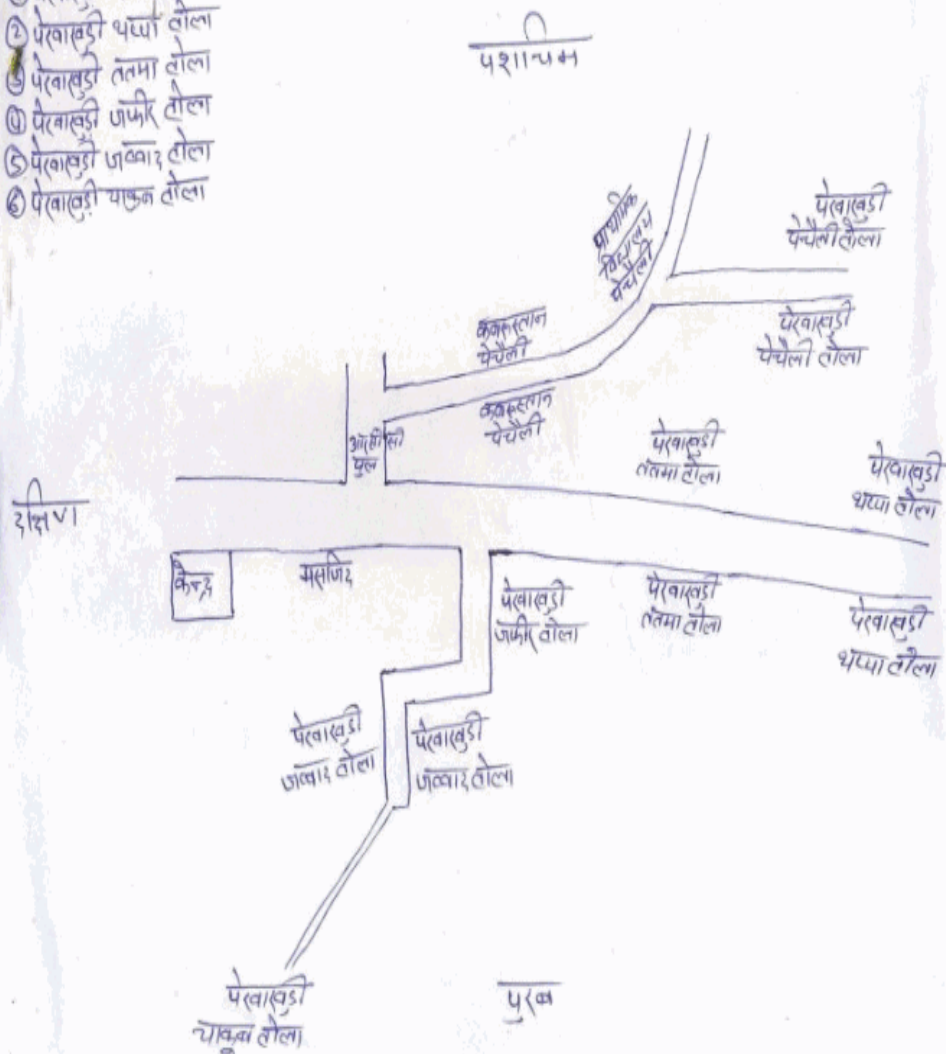 ② पेरवाखुडी थप्पा टोला
③ पेरवाखुडी ततमा टोला
④ पेरवाखुडी जफीर टोला
⑤ पेरवाखुडी जव्वाद टोला
⑥ पेरवाखुडी याकुब टोला
पशचिम
प्राथमिक
विद्यालय
पेचैली
पेरवाखुडी
पेचैली टोला
पेरवाखुडी
पेचैली टोला
कबरुस्तान
पेचैली
कबरुस्तान
पेचैली
आरसीसी
पुल
पेरवाखुडी
ततमा टोला
पेरवाखुडी
थप्पा टोला
दक्षिण
केन्द्र
मसजिद
पेरवाखुडी
जफीर टोला
पेरवाखुडी
ततमा टोला
पेरवाखुडी
थप्पा टोला
पेरवाखुडी
जव्वाद टोला
पेरवाखुडी
जव्वाद टोला
पेरवाखुडी
याकुब टोला
पुरब